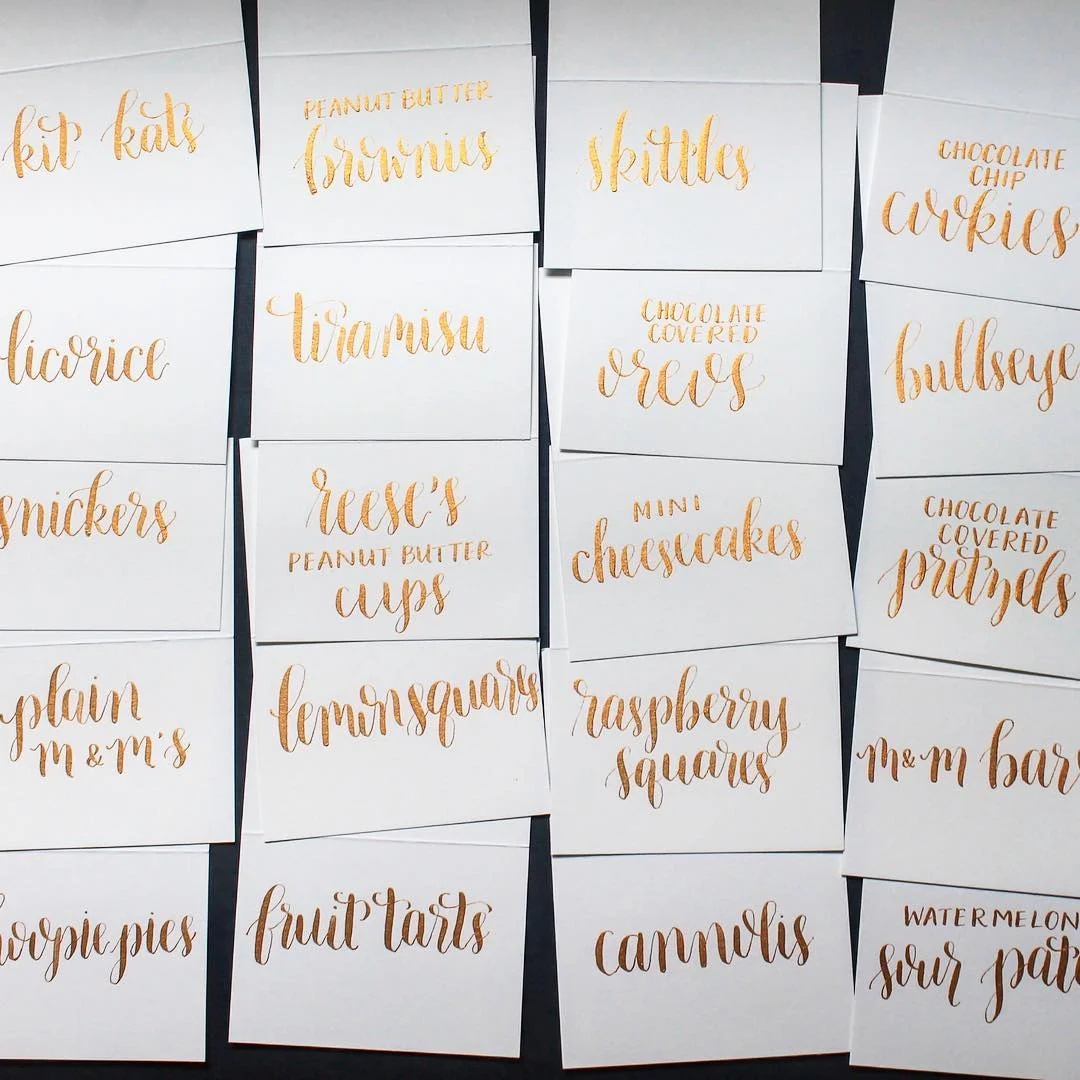 kit kats
PEANUT BUTTER
brownies
skittles
CHOCOLATE
CHIP
cookies
licorice
tiramisu
CHOCOLATE
COVERED
oreos
bullseye
snickers
reese's
PEANUT BUTTER
cups
MINI
cheesecakes
CHOCOLATE
COVERED
pretzels
plain
m & m's
lemon squares
raspberry
squares
m&m bars
hoopie pies
fruit tarts
cannolis
WATERMELON
sour patc